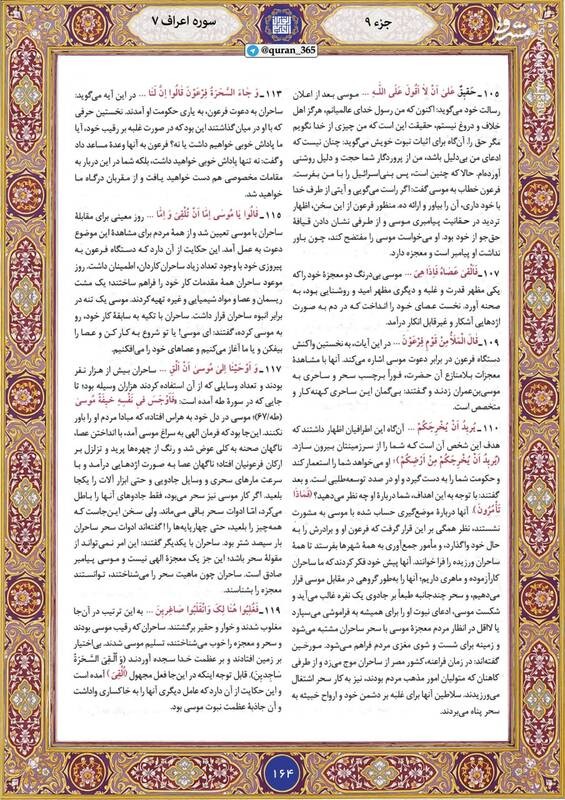 جزء ۹
سوره اعراف ۷
@quran_365
مشرق
۱۰۵ـ حَقِيقٌ عَلىٰ أَنْ لاَ أَقُولَ عَلَى اللَّهِ ... موسی بعد از اعلان
رسالت خود می‌گوید: اکنون که من رسول خدای عالمیانم، هرگز اهل
خلاف و دروغ نیستم، حقیقت این است که من چیزی از خدا نگویم
مگر حق را. آن‌گاه برای اثبات نبوت خویش می‌گوید: چنان نیست که
ادعای من بی‌دلیل باشد، من از پروردگار شما حجت و دلیل روشنی
آورده‌ام. حالا که چنین است، پس بنی‌اسرائیل را با من بفرست.
فرعون خطاب به موسی گفت: اگر راست می‌گویی و آیتی از طرف خدا
با خود داری، آن را بیاور و ارائه ده. منظور فرعون از این سخن، اظهار
تردید در حقانیت پیامبری موسی و از طرفی نشان دادن قیافهٔ
حق‌جو از خود بود. او می‌خواست موسی را مفتضح کند، چون باور
نداشت او پیامبر است و معجزه دارد.
۱۰۷ـ فَأَلْقىٰ عَصَاهُ فَإِذَا هِيَ ... موسی بی‌درنگ دو معجزهٔ خود را که
یکی مظهر قدرت و غلبه و دیگری مظهر امید و روشنایی بود، به
صحنه آورد. نخست عصای خود را انداخت که در دم به صورت
اژدهایی آشکار و غیرقابل انکار درآمد.
۱۰۹ـ قَالَ الْمَلَأُ مِنْ قَوْمِ فِرْعَوْنَ ... در این آیات، به نخستین واکنش
دستگاه فرعون در برابر دعوت موسی اشاره می‌کند. آنها با مشاهدهٔ
معجزات بلامنازع آن حضرت، فوراً برچسب سحر و ساحری به
موسی‌بن‌عمران زدند و گفتند: بی‌گمان این ساحری کهنه‌کار و
متخصص است.
۱۱۰ـ يُرِيدُ أَنْ يُخْرِجَكُمْ ... آن‌گاه این اطرافیان اظهار داشتند که
هدف این شخص آن است که شما را از سرزمینتان بیرون سازد.
(يُرِيدُ أَنْ يُخْرِجَكُمْ مِنْ أَرْضِكُمْ) او می‌خواهد شما را استعمار کند
و حکومت شما را به دست گیرد و او در صدد توسعه‌طلبی است. و بعد
گفتند: با توجه به این اهداف، شما دربارهٔ او چه نظر می‌دهید؟ (فَمَاذَا
تَأْمُرُونَ). آنها دربارهٔ موضع‌گیری حساب شده با موسی به مشورت
نشستند، نظر همگی بر این قرار گرفت که فرعون او و برادرش را به
حال خود واگذارد، و مأمور جمع‌آوری به همهٔ شهرها بفرستد تا همهٔ
ساحران ورزیده را فراخوانند. آنها پیش خود فکر کردند که ما ساحران
کارآزموده و ماهری داریم؛ آنها را به‌طور گروهی در مقابل موسی قرار
می‌دهیم، و سحر چندجانبه طبعاً بر جادوی یک نفره غالب می‌آید و
شکست موسی، ادعای نبوت او را برای همیشه به فراموشی می‌سپارد
یا لااقل در انظار مردم معجزهٔ موسی با سحر ساحران مشتبه می‌شود
و زمینه برای شست و شوی مغزی مردم فراهم می‌شود. مورخین
گفته‌اند: در زمان فراعنه، کشور مصر از ساحران موج می‌زد و از طرفی
کاهنان که متولیان امور مذهب مردم بودند، نیز به کار سحر اشتغال
می‌ورزیدند. سلاطین آنها برای غلبه بر دشمن خود و ارواح خبیثه به
سحر پناه می‌بردند.
۱۱۳ـ وَ جَاءَ السَّحَرَةُ فِرْعَوْنَ قَالُوا إِنَّ لَنَا ... در این آیه می‌گوید:
ساحران به دعوت فرعون، به یاری حکومت او آمدند. نخستین حرفی
که با او در میان گذاشتند این بود که در صورت غلبه بر رقیب خود، آیا
ما پاداش خوبی خواهیم داشت یا نه؟ فرعون به آنها وعدهٔ مساعد داد
و گفت: نه تنها پاداش خوبی خواهید داشت، بلکه شما در این دربار به
مقامات مخصوصی هم دست خواهید یافت و از مقربان درگاه ما
خواهید شد.
۱۱۵ـ قَالُوا يَا مُوسىٰ إِمَّا أَنْ تُلْقِيَ وَ إِمَّا ... روز معینی برای مقابلهٔ
ساحران با موسی تعیین شد و از همهٔ مردم برای مشاهدهٔ این موضوع
دعوت به عمل آمد. این حکایت از آن دارد که دستگاه فرعون به
پیروزی خود با وجود تعداد زیاد ساحران کاردان، اطمینان داشت. روز
موعود ساحران همهٔ مقدمات کار خود را فراهم ساختند؛ یک مشت
ریسمان و عصا و مواد شیمیایی و غیره تهیه کردند. موسی یک تنه در
برابر انبوه ساحران قرار داشت. ساحران با تکیه به سابقهٔ کار خود، رو
به موسی کرده، گفتند: ای موسی! یا تو شروع به کار کن و عصا را
بیفکن و یا ما آغاز می‌کنیم و عصاهای خود را می‌افکنیم.
۱۱۷ـ وَ أَوْحَيْنَا إِلىٰ مُوسىٰ أَنْ أَلْقِ ... ساحران بیش از هزار نفر
بودند و تعداد وسایلی که از آن استفاده کردند هزاران وسیله بود؛ تا
جایی که در سورهٔ طه آمده است: «فَأَوْجَسَ فِي نَفْسِهِ خِيفَةً مُوسىٰ
(طه/۶۷)؛ موسی در دل خود به هراس افتاد»؛ که مبادا مردم او را باور
نکنند. این‌جا بود که فرمان الهی به سراغ موسی آمد، با انداختن عصا،
ناگهان صحنه به کلی عوض شد و رنگ از چهره‌ها پرید و تزلزل بر
ارکان فرعونیان افتاد؛ ناگهان عصا به صورت اژدهایی درآمد و با
سرعت مارهای سحری و وسایل جادویی و حتی ابزار آلات را یکجا
بلعید. اگر کار موسی نیز سحر می‌بود، فقط جادوهای آنها را باطل
می‌کرد، امّا ادوات سحر باقی می‌ماند. ولی سخن این‌جاست که
همه‌چیز را بلعید، حتی چهارپایه‌ها را! گفته‌اند ادوات سحر ساحران
بار سیصد شتر بود. ساحران با یکدیگر گفتند: این امر نمی‌تواند از
مقولهٔ سحر باشد؛ این جز یک معجزهٔ الهی نیست و موسی پیامبر
صادق است. ساحران چون ماهیت سحر را می‌شناختند، توانستند
معجزه را بشناسند.
۱۱۹ـ فَغُلِبُوا هُنَا لِكَ وَ انْقَلَبُوا صَاغِرِينَ ... به این ترتیب در آن‌جا
مغلوب شدند و خوار و حقیر برگشتند. ساحران که رقیب موسی بودند
و سحر و معجزه را خوب می‌شناختند، تسلیم موسی شدند. بی‌اختیار
بر زمین افتادند و بر عظمت خدا سجده آوردند (وَ أُلْقِيَ السَّحَرَةُ
سَاجِدِينَ). قابل توجه اینکه در این‌جا فعل مجهول (أُلْقِيَ) آمده است
و این حکایت از آن دارد که عامل دیگری آنها را به خاکساری واداشت
و آن جاذبهٔ عظمت نبوت موسی بود.
۱۶۴